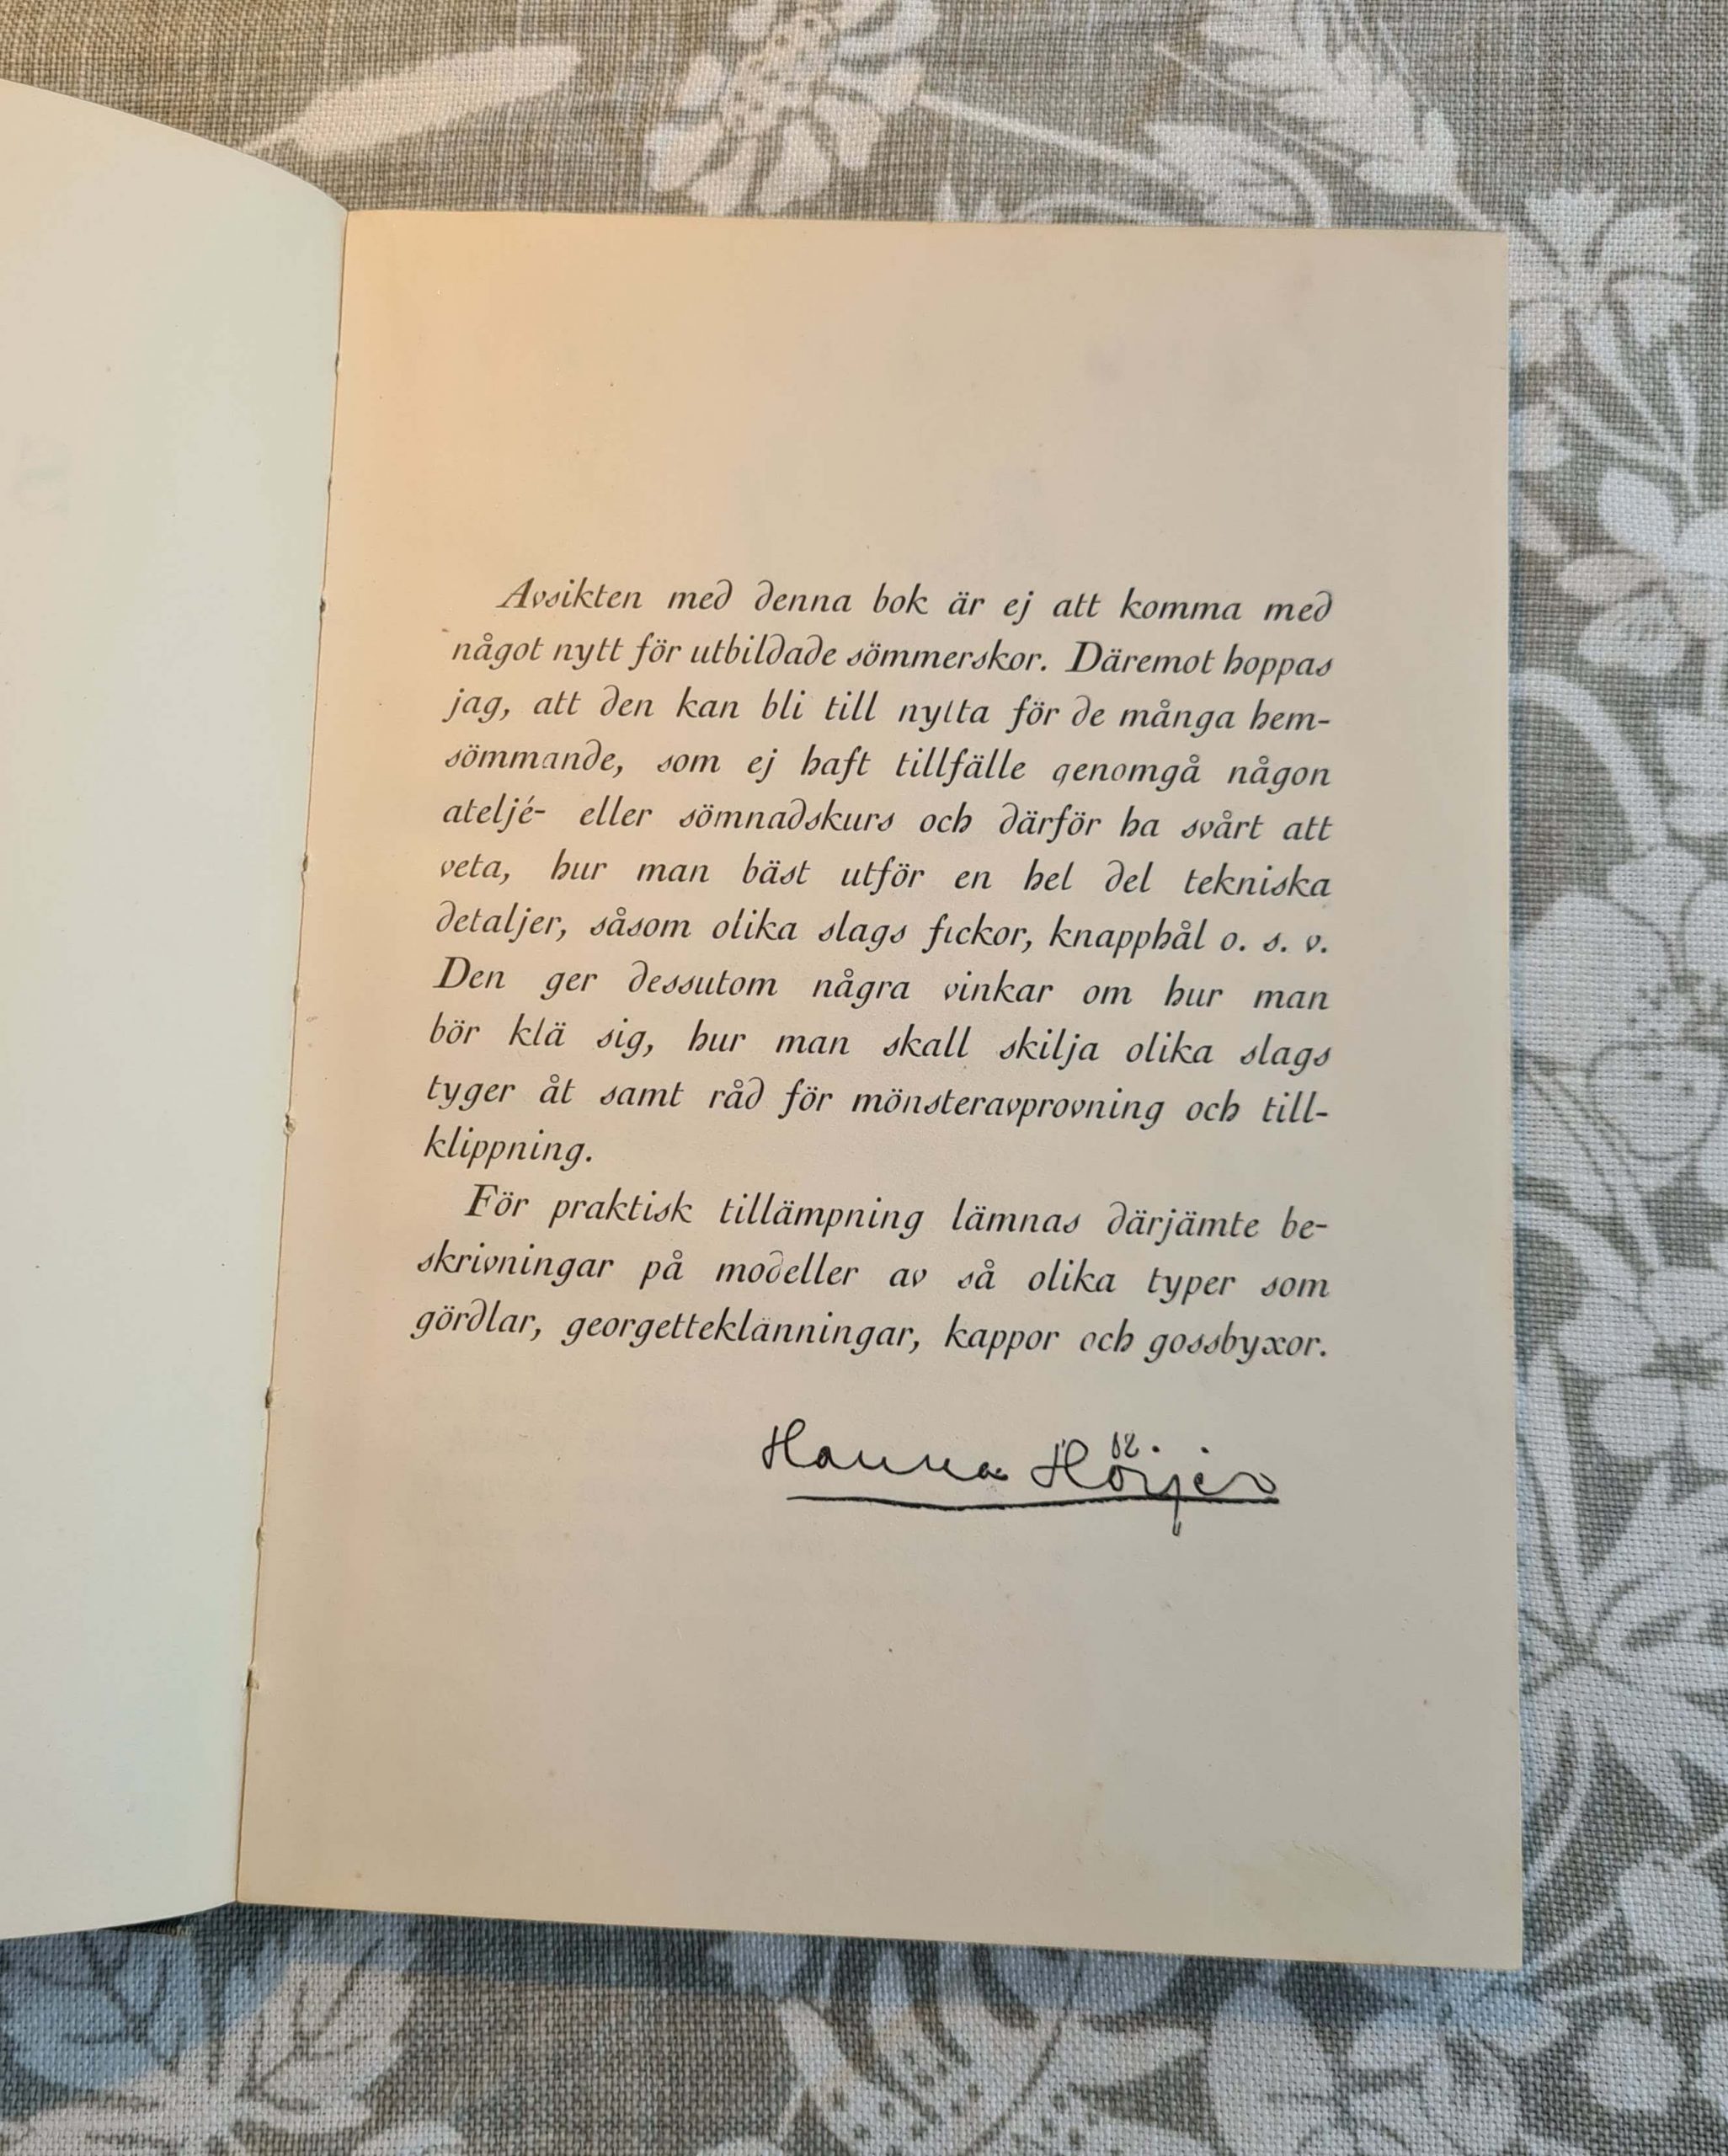 Avsikten med denna bok är ej att komma med
något nytt för utbildade sömmerskor. Däremot hoppas
jag, att den kan bli till nytta för de många hem-
sömmande, som ej haft tillfälle genomgå någon
ateljé- eller sömnadskurs och därför ha svårt att
veta, hur man bäst utför en hel del tekniska
detaljer, såsom olika slags fickor, knapphål o. s. v.
Den ger dessutom några vinkar om hur man
bör klä sig, hur man skall skilja olika slags
tyger åt samt råd för mönsteravprovning och till-
klippning.
För praktisk tillämpning lämnas därjämte be-
skrivningar på modeller av så olika typer som
gördlar, georgetteklänningar, kappor och gossbyxor.
Hanna Hörjer